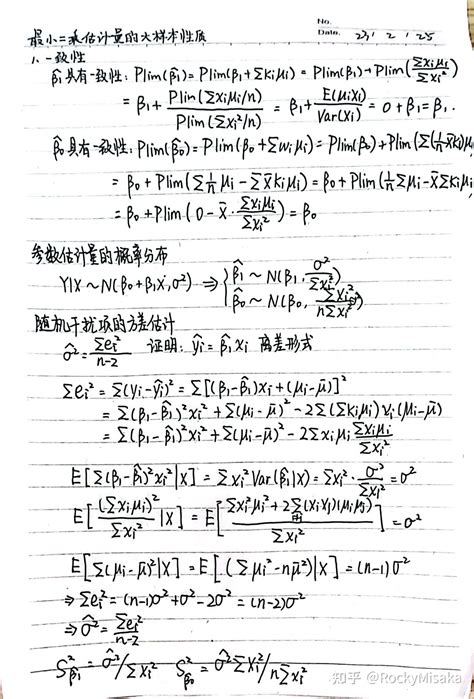 No.
Date. 23 / 2 / 25
最小二乘估计量的大样本性质
1. 一致性
β̂₁具有一致性: Plim(β̂₁) = Plim(β₁+Σkᵢμᵢ) = Plim(β₁)+Plim(Σxᵢμᵢ/Σxᵢ²)
= β₁ + Plim(Σxᵢμᵢ/n)/Plim(Σxᵢ²/n) = β₁ + E(μᵢXᵢ)/Var(Xᵢ) = 0+β₁ = β₁.
β̂₀具有一致性: Plim(β̂₀) = Plim(β₀+Σwᵢμᵢ) = Plim(β₀)+Plim(Σ(1/n-X̄kᵢ)μᵢ
= β₀ + Plim(Σ1/nμᵢ - X̄Σkᵢμᵢ) = β₀ + Plim(1/nΣμᵢ-X̄Σkᵢμᵢ
= β₀ + Plim(0 - X̄·Σxᵢμᵢ/Σxᵢ²) = β₀
参数估计量的概率分布
Y|X ~ N(β₀+β₁X, σ²) ⇒ { β̂₁ ~ N(β₁, σ²/Σxᵢ²)
β̂₀ ~ N(β₀, ΣXᵢ²/nΣxᵢ²)
随机干扰项的方差估计
σ̂² = Σeᵢ²/n-2 证明: ŷᵢ = β̂₁xᵢ 离差形式
Σeᵢ² = Σ(yᵢ-ŷᵢ)² = Σ[(β₁-β̂₁)xᵢ+(μᵢ-μ̄)]²
= Σ(β₁-β̂₁)²xᵢ² + Σ(μᵢ-μ̄)² - 2Σ(Σkᵢμᵢ)xᵢ(μᵢ-μ̄)
= Σ(β₁-β̂₁)²xᵢ² + Σ(μᵢ-μ̄)² - 2Σxᵢμᵢ Σxᵢμᵢ/Σxᵢ²
E[Σ(β₁-β̂₁)²xᵢ²|X] = Σxᵢ²Var(β̂₁|X) = Σxᵢ²·σ²/Σxᵢ² = σ²
E[(Σxᵢμᵢ)²/Σxᵢ² |X] = E[Σxᵢ²μᵢ²+2Σ(xᵢxⱼ)(μᵢμⱼ)/Σxᵢ²] = σ²
E[Σ(μᵢ-μ̄)²|X] = E[(Σμᵢ²-nμ̄²)|X] = (n-1)σ²
⇒ Σeᵢ² = (n-1)σ²+σ²-2σ² = (n-2)σ²
⇒ σ̂² = Σeᵢ²/n-2
S²β̂₁ = σ̂²/Σxᵢ² S²β̂₀ = σ̂²ΣXᵢ²/nΣxᵢ²
知乎 @RockyMisaka